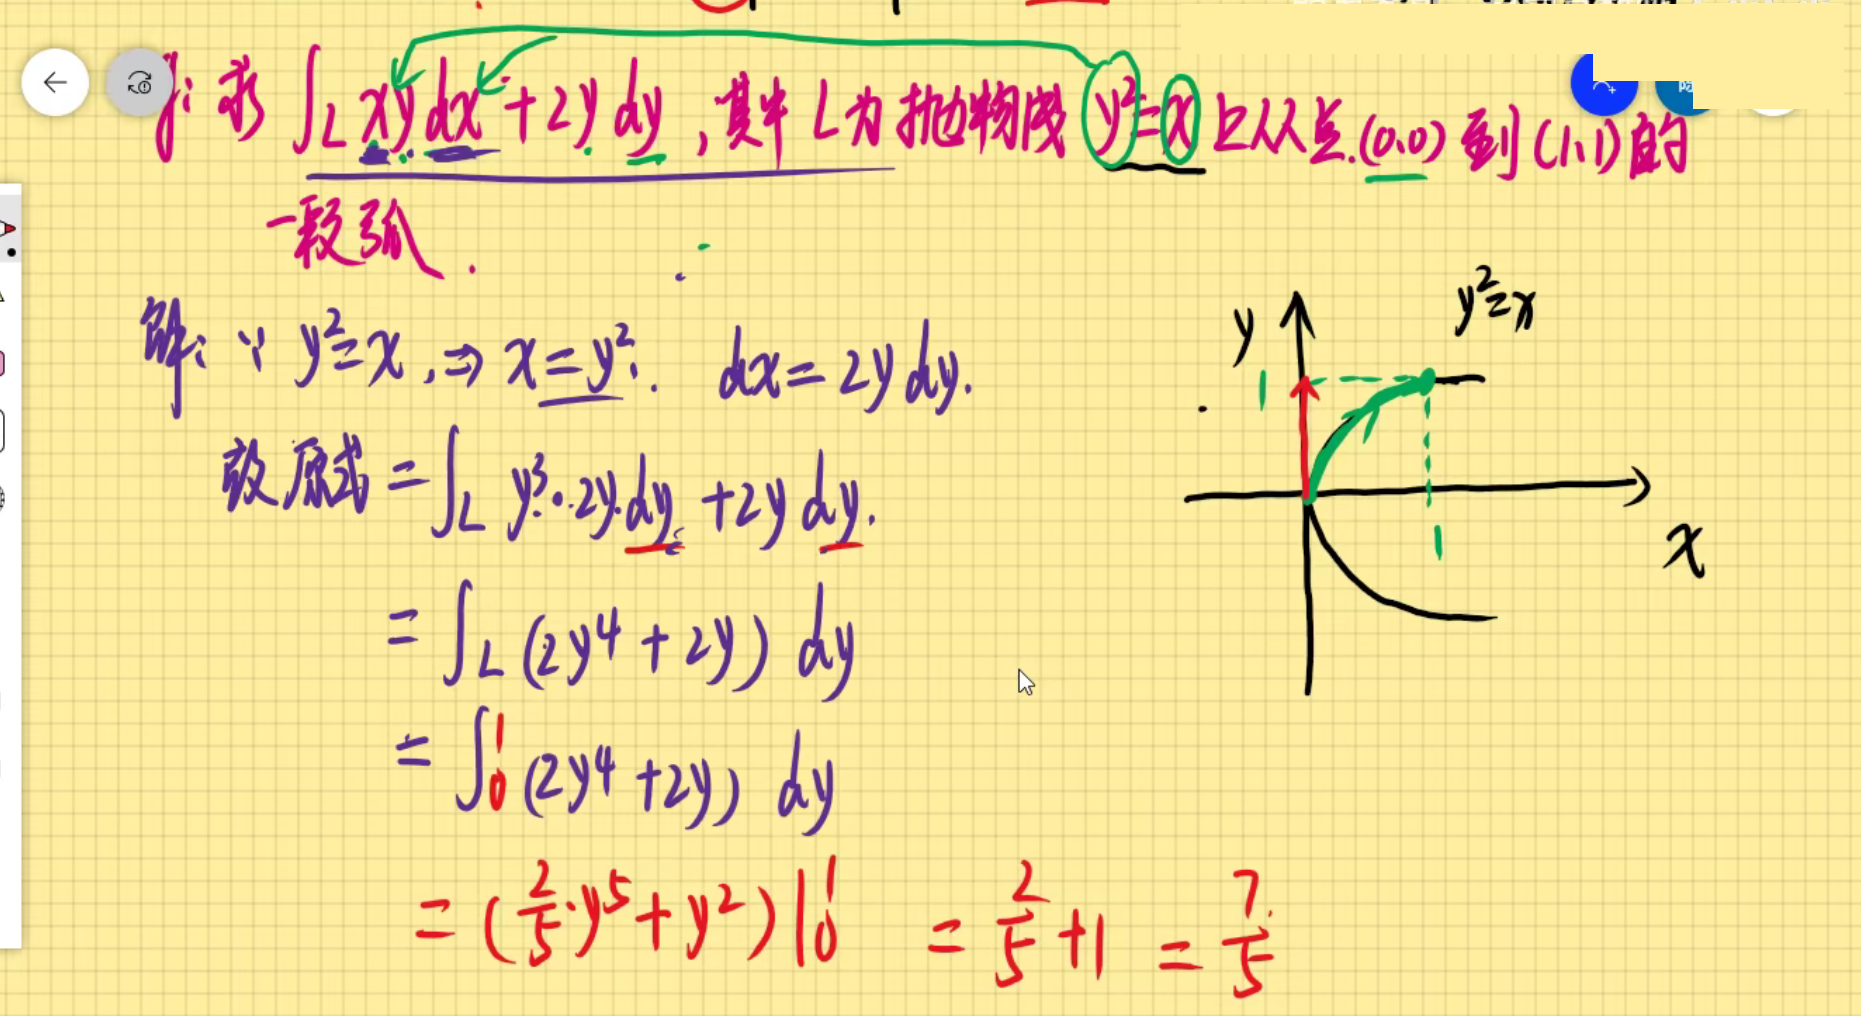 例: 求 ∫_L xy dx + 2y dy , 其中 L 为 抛物线 y²=x 上从点 (0,0) 到 (1,1) 的
一段弧.
解: ∵ y²=x, ⇒ x=y². dx=2y dy.
故原式 = ∫_L y³·2y·dy + 2y dy.
= ∫_L (2y⁴ + 2y) dy
= ∫₀¹ (2y⁴ + 2y) dy
= (2/5·y⁵ + y²) |₀¹ = 2/5 + 1 = 7/5
y²=x
y
1
1
x